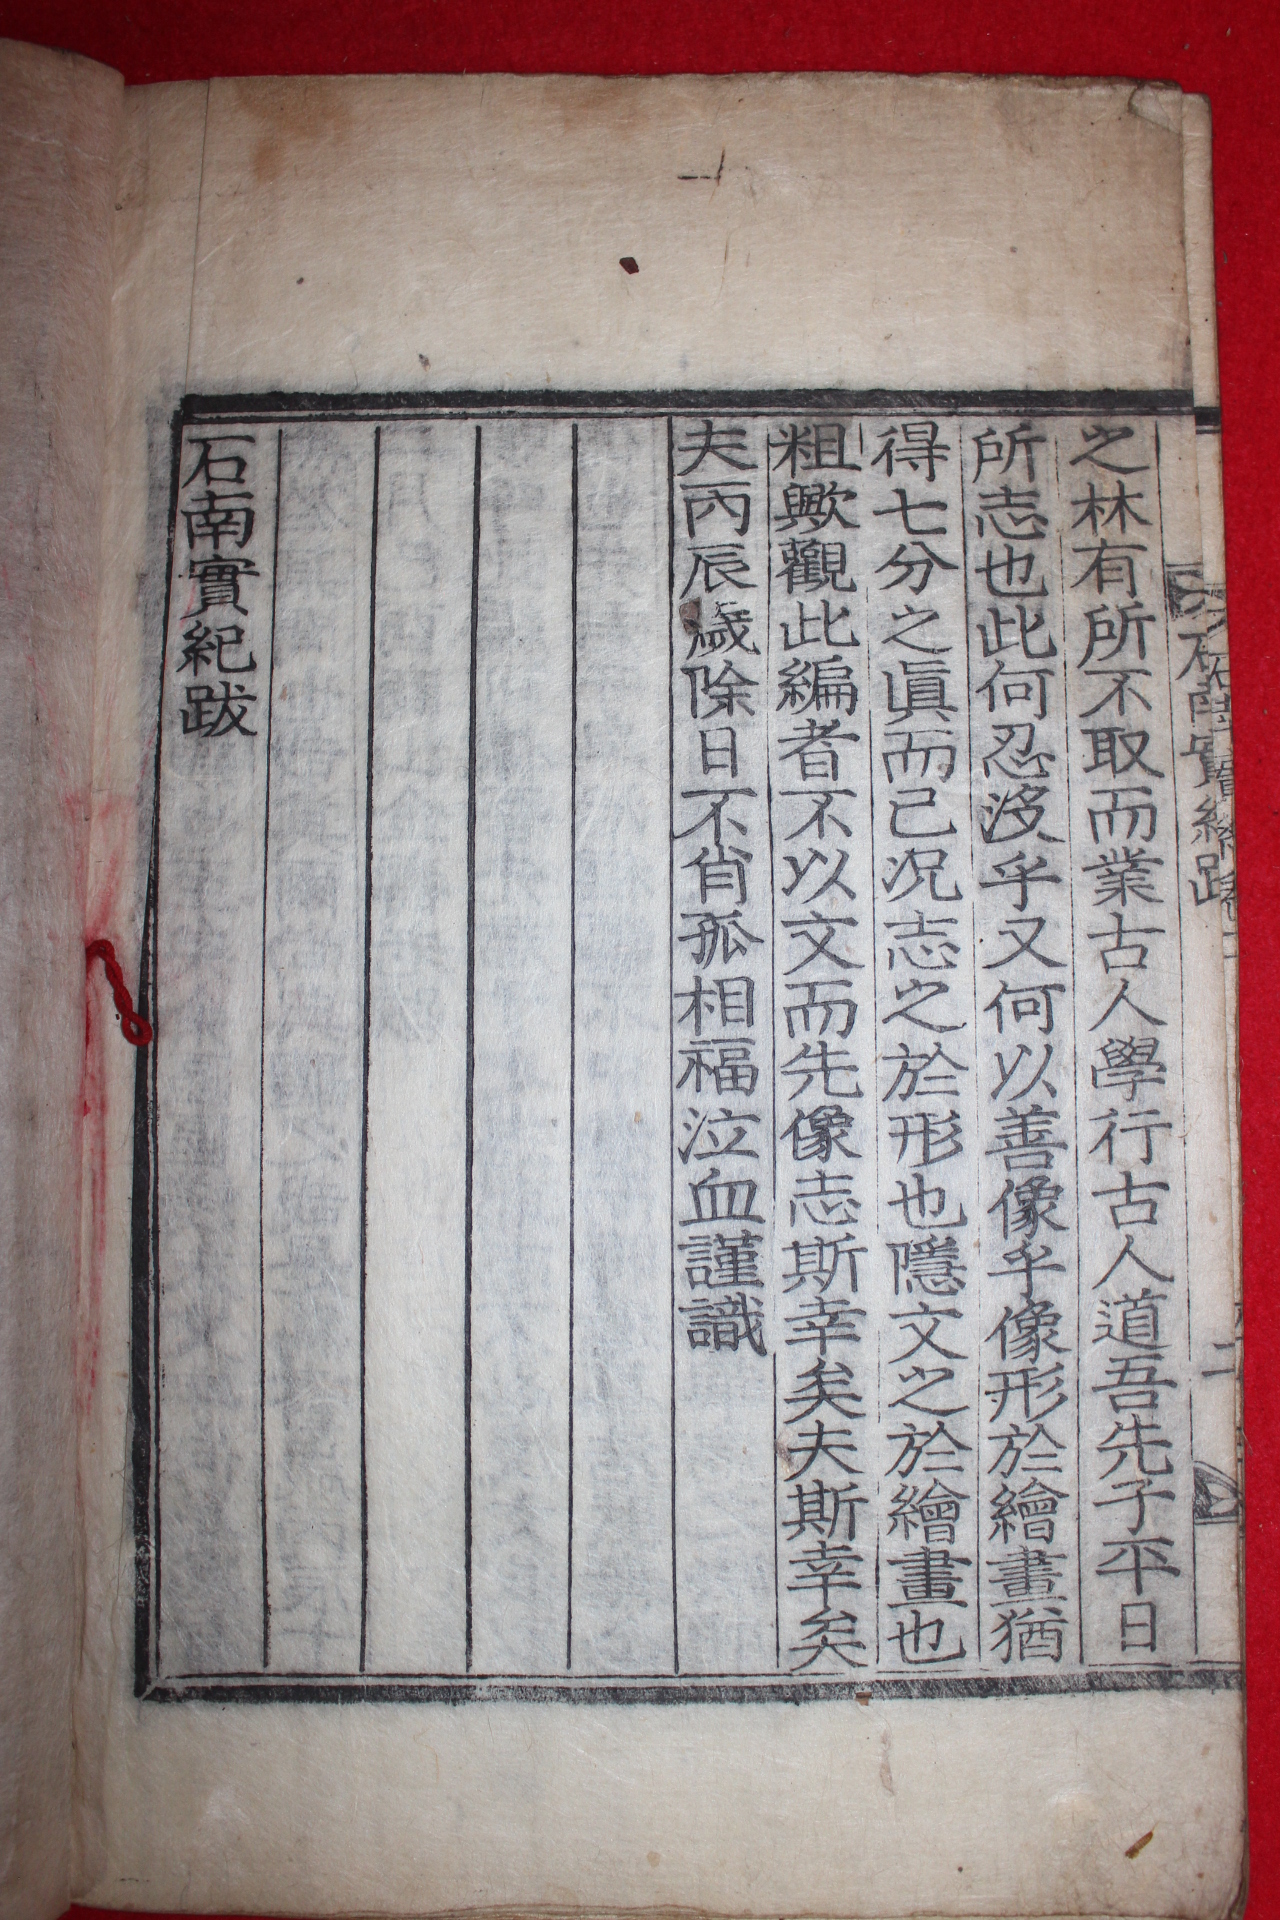 之林有所不取而業古人學行古人道吾先子平日
所志也此何忍沒乎又何以善像乎像形於繪畫猶
得七分之眞而已况志之於形也隱文之於繪畫也
粗歟觀此編者不以文而先像志斯幸矣夫斯幸矣
夫丙辰歲除日不肖孤相福泣血謹識
石南實紀跋